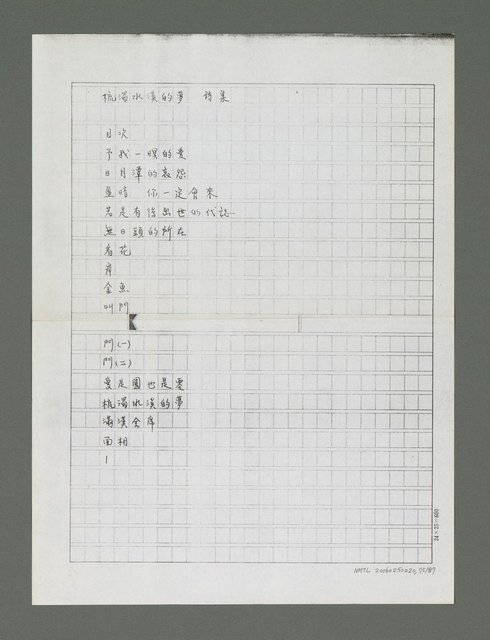 梳濁水溪的夢　詩集
目次
予我一暝的愛
日月潭的哀怨
昱暗　你一定會來
若是有後出世的代誌
無日頭的所在
看花
岸
金魚
叫門
門(一)
門(二)
愛是園也是墓
梳濁水溪的夢
滿漢全席
面相
1
24×25=600
NMTL 20060250020, 75/87